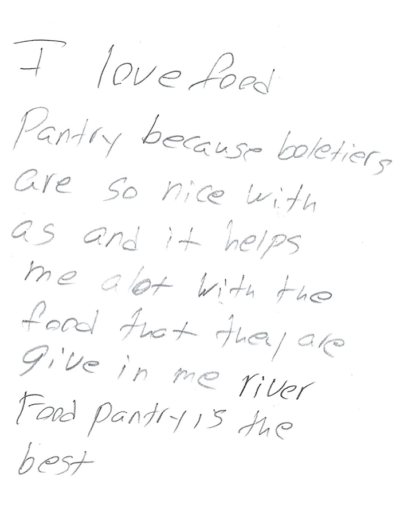 I love food
Pantry because boletiers
are so nice with
as and it helps
me alot with the
food that they are
give in me river
Food pantry is the
best